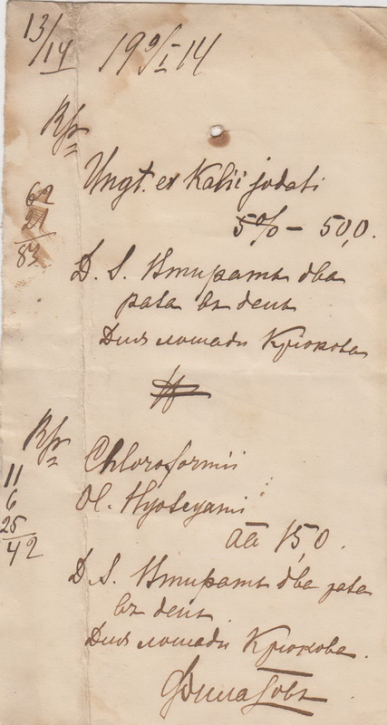 13/14
19 9/I 14
Rp.
Ungt. ex Kalii jodati
5% — 50,0.
62
21
83
D. S. Втирать два
раза въ день
Для лошади Крюкова
#
Rp.
Chloroformii
Ol. Hyosciami
āā 15,0.
11
6
25
42
D. S. Втирать два раза
въ день.
Для лошади Крюкова.